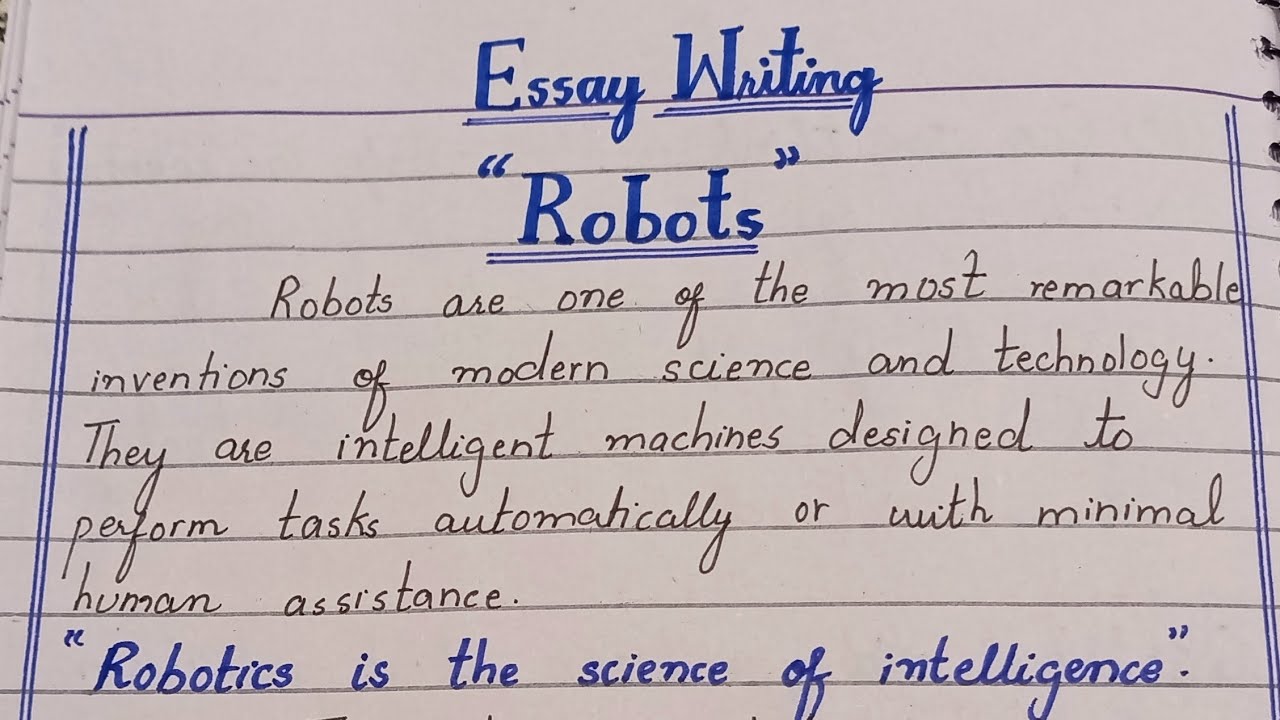 Essay Writing
“Robots”
Robots are one of the most remarkable
inventions of modern science and technology.
They are intelligent machines designed to
perform tasks automatically or with minimal
human assistance.
“Robotics is the science of intelligence”.